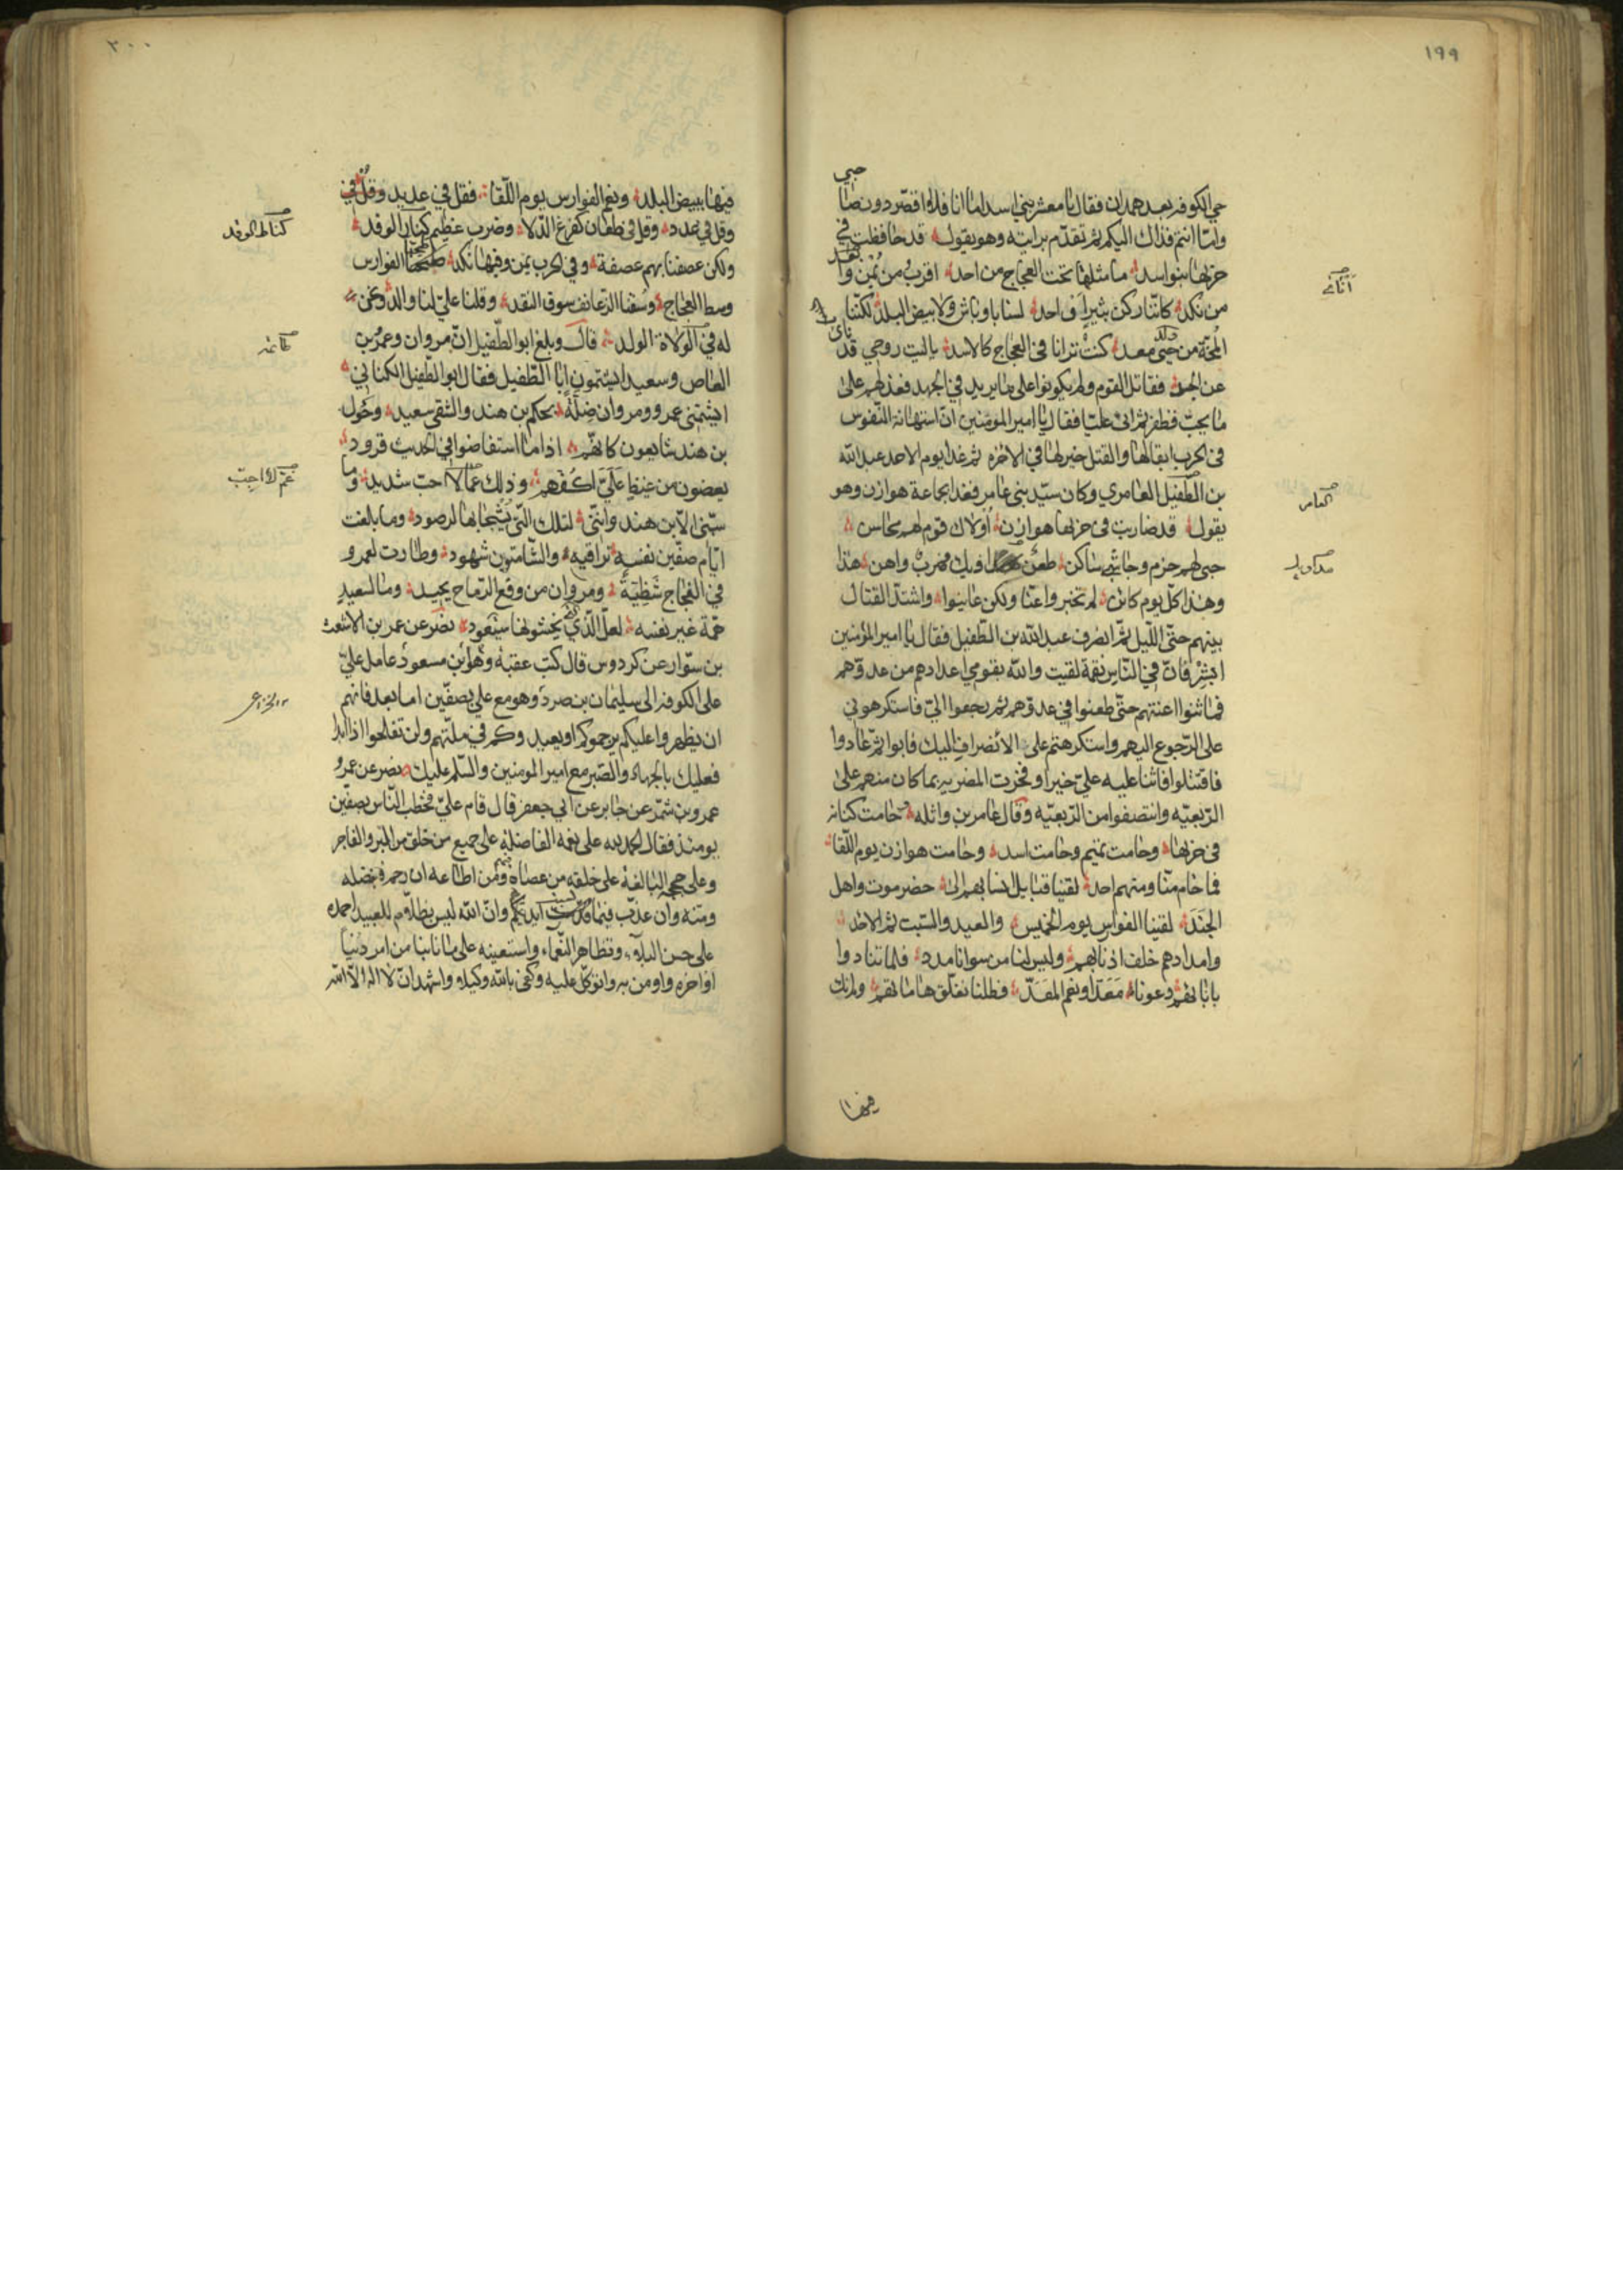 ١٩٩
حبي
حي الكوفة بعد همدان فقال يا معشر بني اسد اما انا فلا اقصر دون صاحبي
وامّا انتم فذاك اليكم ثم تقدّم برايته وهو يقول قد حافظت في
حربها بنو اسد ما مثلها تحت العجاج من احد اقرب من يُمن وابعد
من نكد كانّنا ركن ثبير او احد لسنا باوباش ولا بيض البلد لكنّنا
المحّة من حيّ معد كنت ترانا في العجاج كالاسد يا ليت روحي قد ناى
عن الجسد فقاتل القوم ولم يكونوا على ما يريد في الجهد فعذلهم على
ما يجب فظفر ثم اتى عليّا فقال يا امير المؤمنين انّ استهانة النّفوس
في الحرب ابقى لها والقتل خير لها في الاخره ثم غدا يوم الاحد عبد الله
بن الطّفيل العامري وكان سيّد بني عامر فغدا بجماعة هوازن وهو
يقول قد ضاربت في حربها هوازن اولاك قوم لهم محاسن
حبي لهم حزم وجاشي ساكن طعن مداويك وضرب واهن هذا
وهذا كلّ يوم كائن لم تخبروا عنّا ولكن عاينوا واشتدّ القتال
بينهم حتّى اللّيل ثمّ انصرف عبد الله بن الطّفيل فقال يا امير المؤمنين
ابشر فانّ في النّاس نقمة لقيت والله بقومي اعدادهم من عدوّهم
فما ثنوا اعنتهم حتّى طعنوا في عدوّهم ثم رجعوا اليّ فاستكرهوني
على الرّجوع اليهم واستكرهتم على الانصراف اليك فابوا ثمّ عادوا
فاقتتلوا فاثنا عليه عليّ خيرا وفخرت المضريه بما كان منهم على
الرّبعيّه وانتصفوا من الرّبعيّه وقال عامر بن واثله حامت كنانة
في حربها وحامت تميم وحامت اسد وحامت هوازن يوم اللّقا
فما خام منّا ومنهم احد لقينا قبايل انسابهم الى حضرموت واهل
الجند لقينا الفوارس يوم الخميس والعيد والسّبت ثم الاحد
وامدادهم خلف اذنابهم وليس لنا من سوانا مدد فلمّا تنادوا
بابائهم دعونا معدّا ونعم المعدّ فظلنا نفلّق هاماتهم ولم نك
فيها
اتاني
العامر
مداويك
٢٠٠
فيها ببيض البلد ونعم الفوارس يوم اللّقا فقل في عديد وقل في
وقل في عدد وقل في طعان كفرغ الدّلا وضرب عظيم كنار الوقد
ولكن عصفنا بهم عصفة وفي الحرب يمن وفيها نكد طحنا الفوارس
وسط العجاج وسقنا الزعانف سوق النقد وقلنا عليّ لنا والد ونحن
له في الولاة الولد قال وبلغ ابو الطّفيل انّ مروان وعمرو بن
العاص وسعيدا يشتمون ابا الطّفيل فقال ابو الطّفيل الكناني
ايشتمني عمرو ومروان ضلّة بحكم بن هند والشّقي سعيد وحول
بن هند شايعون كانّهم اذا ما استفاضوا في الحديث قرود
يعضون من غيظ عليّ اكفّهم وذلك غمّ لا احبّ شديد وما
سبّني الّا بن هند وانّني لتلك الّتي يشجا بها لرصود وما بلغت
ايّام صفّين نفسه تراقيه والشّامتون شهود وطارت لعمرو
في العجاج شظيّة ومروان من وقع الرّماح يحيد وما لسعيد
همّة غير نفسه لعلّ الّذي يخشونها سيعود نصر عن عمر بن الاشعث
بن سوّار عن كردوس قال كتب عقبة وهو ابن مسعود عامل عليّ
على الكوفة الى سليمان بن صرد وهو مع علي بصفّين اما بعد فانهم
ان يظهروا عليكم يرجموكم او يعيدوكم في ملّتهم ولن تفلحوا اذا ابدا
فعليك بالجهاد والصّبر مع امير المومنين والسّلم عليك نصر عن عمرو
عمرو بن شمّر عن جابر عن ابي جعفر قال قام عليّ فخطب النّاس بصفّين
يومئذ فقال الحمد لله على نعمه الفاضلة على جميع من خلق من البر والفاجر
وعلى حججه البالغة على خلقه من عصاه ومن اطاعه ان رحم فبفضله
ومنّه وان عذّب فبما كسبت ايديكم وانّ الله ليس بظلّام للعبيد احمده
على حسن البلاء وتظاهر النّعماء واستعينه على ما نابنا من امر دنيا
او اخره واومن به واتوكّل عليه وكفى بالله وكيلا واشهد ان لا اله الّا الله
كنار الوقد
غم لا احب
الخزاعي